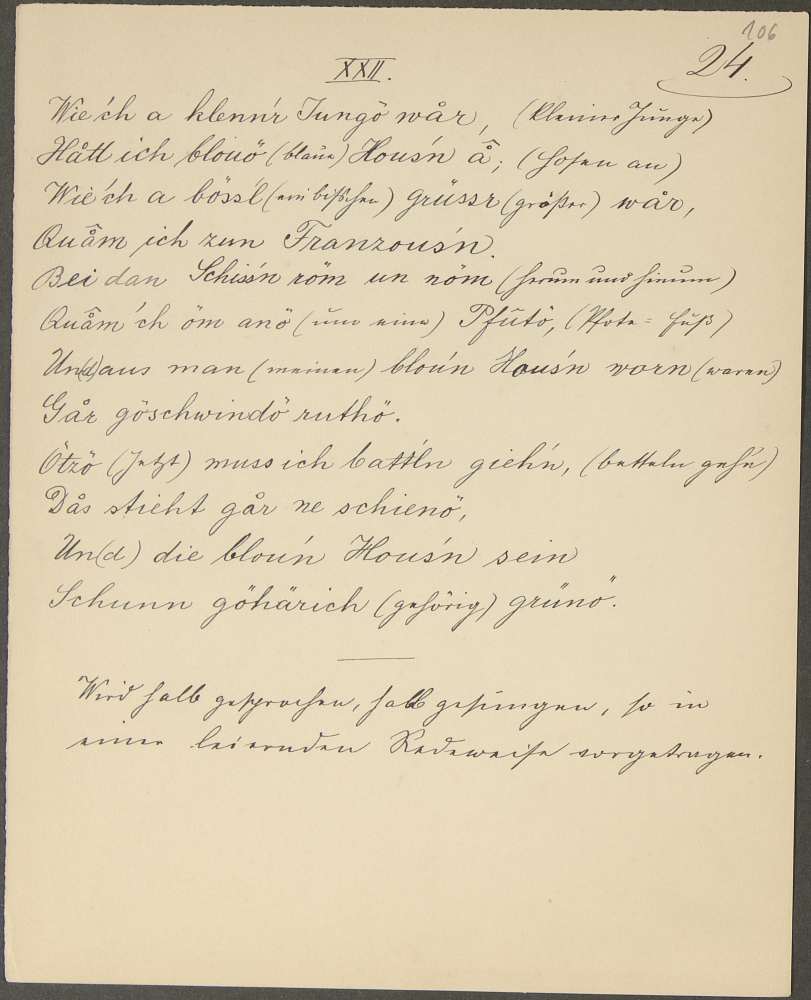 106
24.
XXII.
Wie'ch a klenn'r Jungö wår, (kleiner Junge)
Hått ich blouö (blaue) Hous'n å; (Hosen an)
Wie'ch a böss'l (ein bißchen) grüssr (größer) wår,
Quåm ich zun Franzous'n.
Bei dan Schiss'n röm un nöm (herum und hinum)
Quåm'ch öm anö (um eine) Pfūtö, (Pfote = Fuß)
Un(d) aus man (meinen) blou'n Hous'n worn (waren)
Går göschwindö ruthö.
Ötzö (Jetzt) muss ich batt'ln gieh'n, (betteln gehn)
Dås stieht går ne schienö,
Un(d) die blou'n Hous'n sein
Schunn göhärich (gehörig) grünö.
Wird halb gesprochen, halb gesungen, so in
einer leiernden Redeweise vorgetragen.